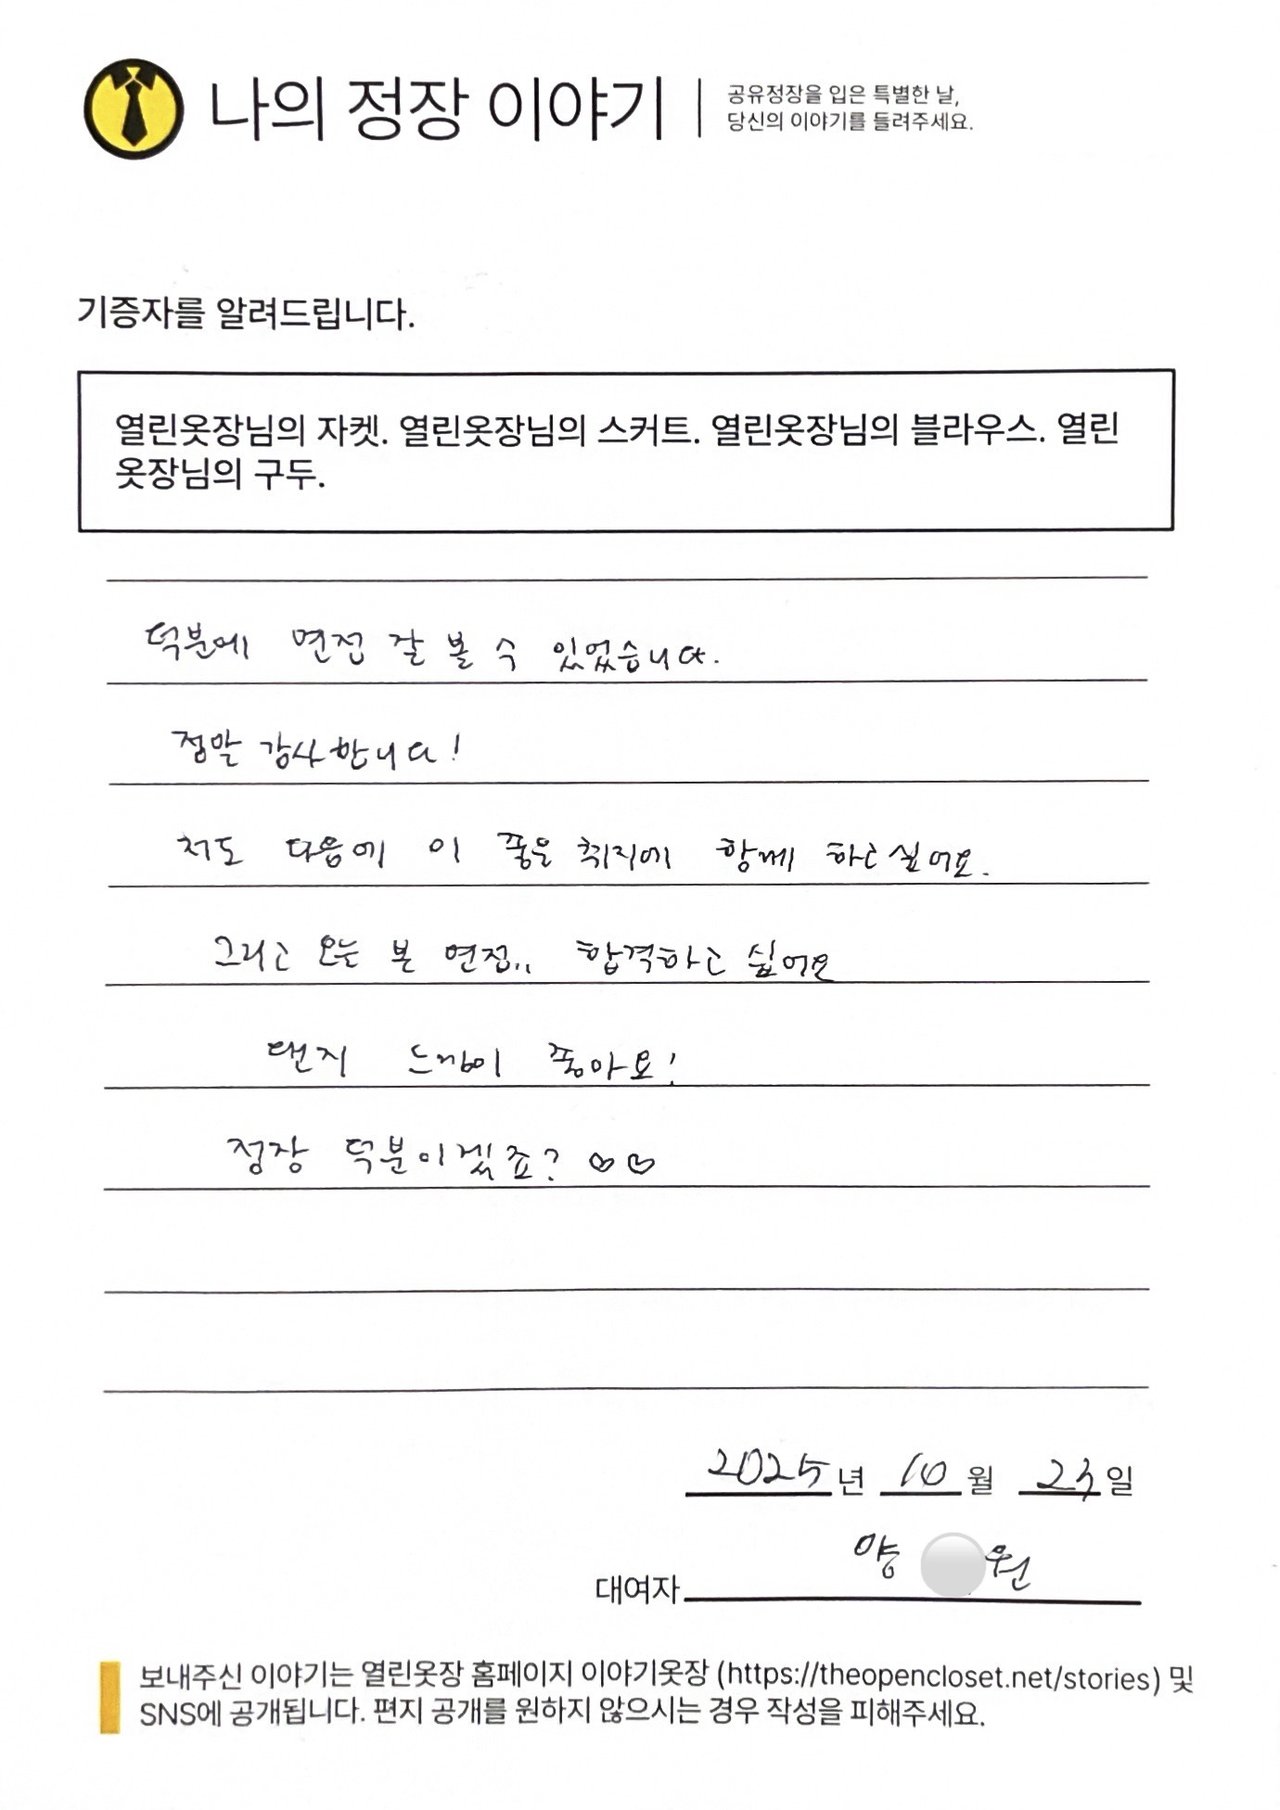 나의 정장 이야기
공유정장을 입은 특별한 날,
당신의 이야기를 들려주세요.
기증자를 알려드립니다.
열린옷장님의 자켓. 열린옷장님의 스커트. 열린옷장님의 블라우스. 열린
옷장님의 구두.
덕분에 면접 잘 볼 수 있었습니다.
정말 감사합니다!
저도 다음에 이 좋은 취지에 함께 하고싶어요.
그리고 오늘 본 면접.. 합격하고 싶어요
왠지 느낌이 좋아요!
정장 덕분이겠죠? ♡♡
2025년 10월 23일
대여자 양 원
보내주신 이야기는 열린옷장 홈페이지 이야기옷장 (https://theopencloset.net/stories) 및
SNS에 공개됩니다. 편지 공개를 원하지 않으시는 경우 작성을 피해주세요.